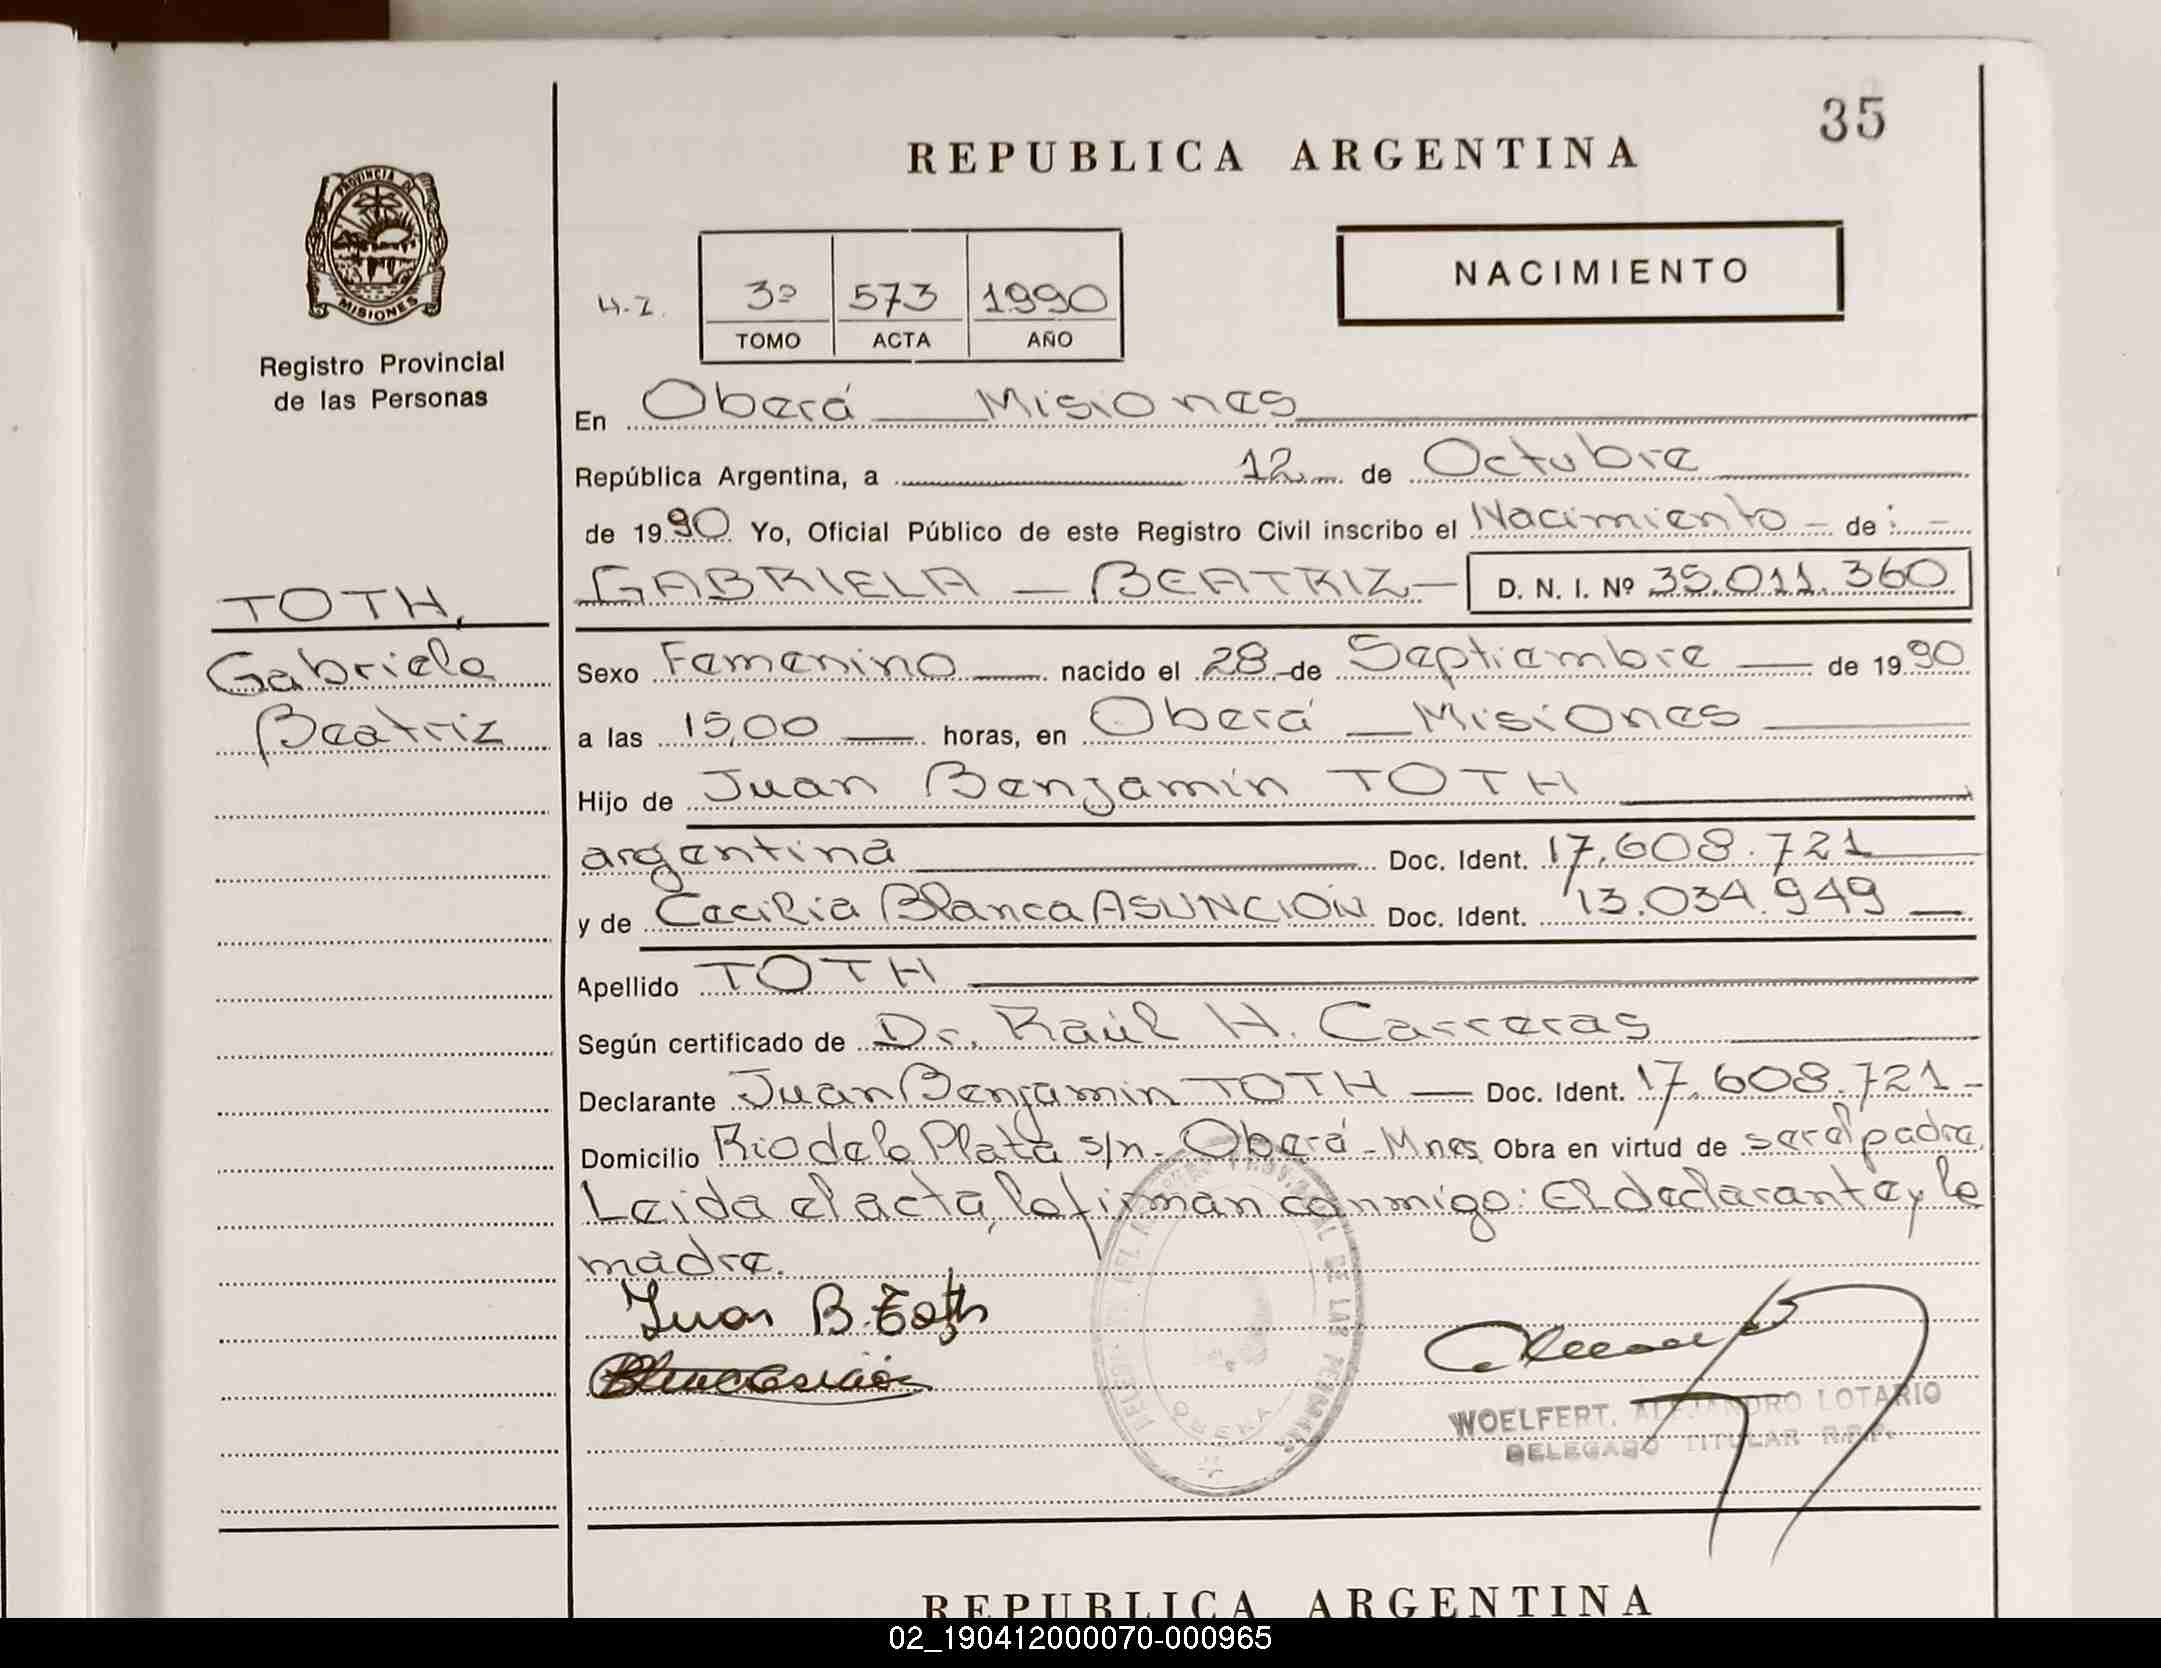 35
REPUBLICA ARGENTINA
PROVINCIA DE
MISIONES
Registro Provincial
de las Personas
NACIMIENTO
H.Z. 3º 573 1990
TOMO ACTA AÑO
En Oberá — Misiones
República Argentina, a 12 de Octubre
de 1990 Yo, Oficial Público de este Registro Civil inscribo el Nacimiento — de: —
GABRIELA — BEATRIZ — D. N. I. Nº 35.011.360
TOTH,
Gabriela
Beatriz
Sexo Femenino — nacido el 28 de Septiembre — de 1990
a las 15,00 — horas, en Oberá — Misiones
Hijo de Juan Benjamín TOTH
argentina Doc. Ident. 17.608.721
y de Cecilia Blanca ASUNCIÓN Doc. Ident. 13.034.949 —
Apellido TOTH
Según certificado de Dr. Raúl H. Carreras
Declarante Juan Benjamin TOTH — Doc. Ident. 17.608.721 -
Domicilio Rio de la Plata s/n - Oberá - Mnes Obra en virtud de ser el padre.
Leida el acta, la firman conmigo: El declarante y la
madre.
Juan B. Toth
WOELFERT, ALEJANDRO LOTARIO
DELEGADO TITULAR R.P.P.
REPUBLICA ARGENTINA
02_190412000070-000965